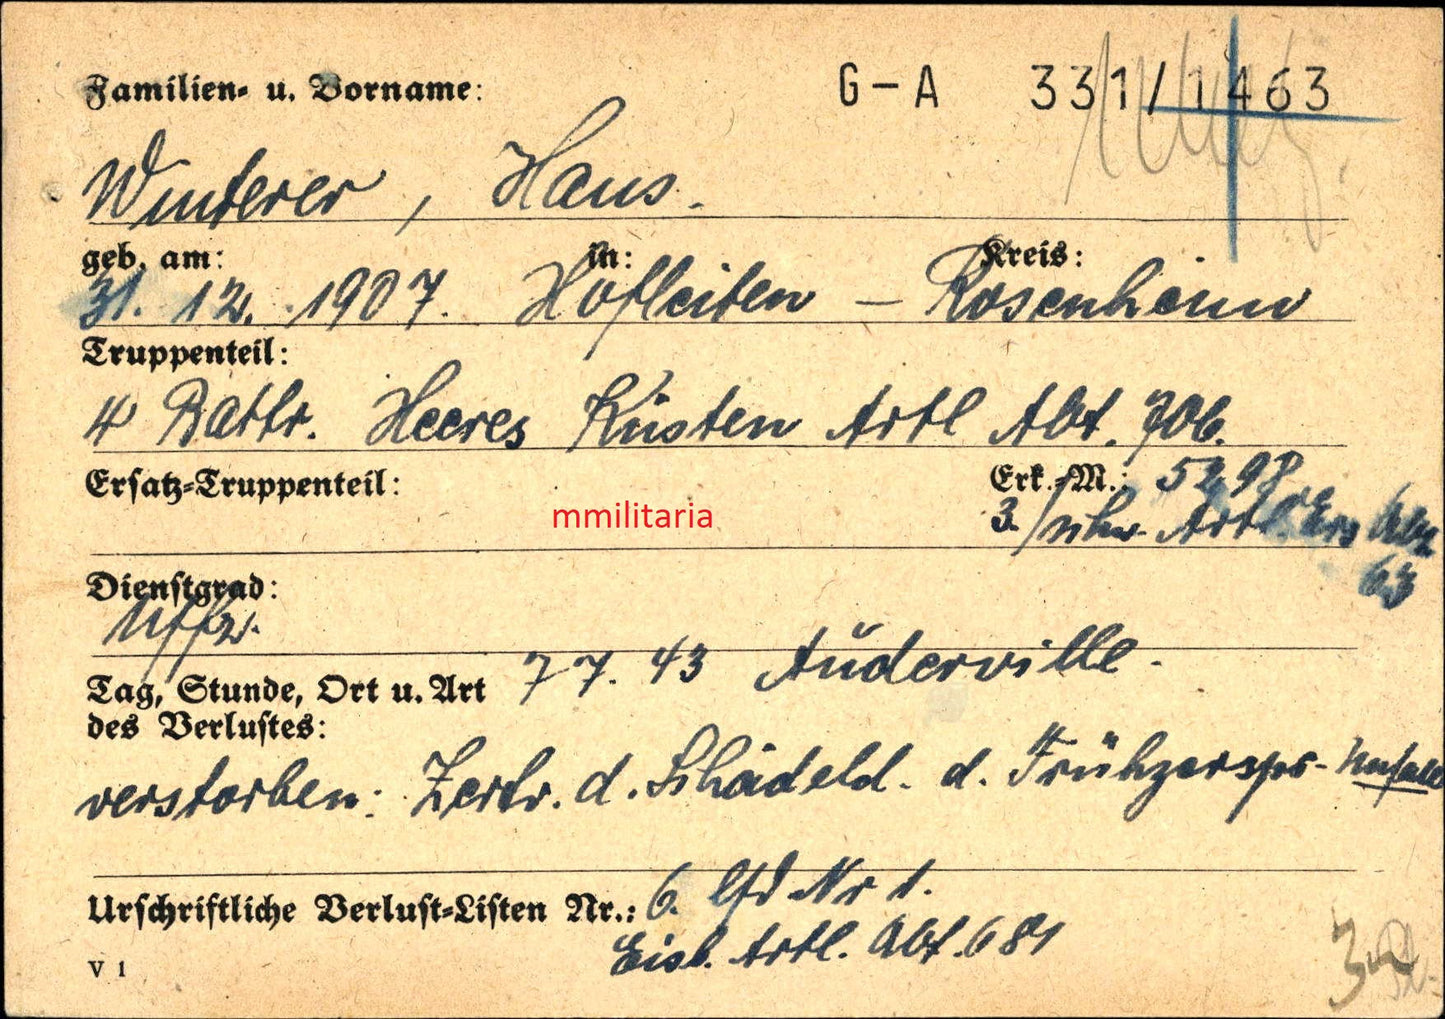 Familien- u. Vorname:
G-A 331/1463
Winterer, Hans.
geb. am: in: Kreis:
31. 12. 1907. Hofleiten - Rosenheim
Truppenteil:
4 Battr. Heeres Küsten Artl Abt. 706.
Ersatz-Truppenteil: Erk.-M.: 5298
mmilitaria
3. / schw. Artl. Ers Abt
63
Dienstgrad:
Uffz.
Tag, Stunde, Ort u. Art 7 7. 43 Auderville.
des Verlustes:
verstorben: Zertr. d. Schädeld. d. Frühzersps- Unfall
Urschriftliche Verlust-Listen Nr.: 6. lfd Nr 1.
Eisb. Artl. Abt. 681
V 1